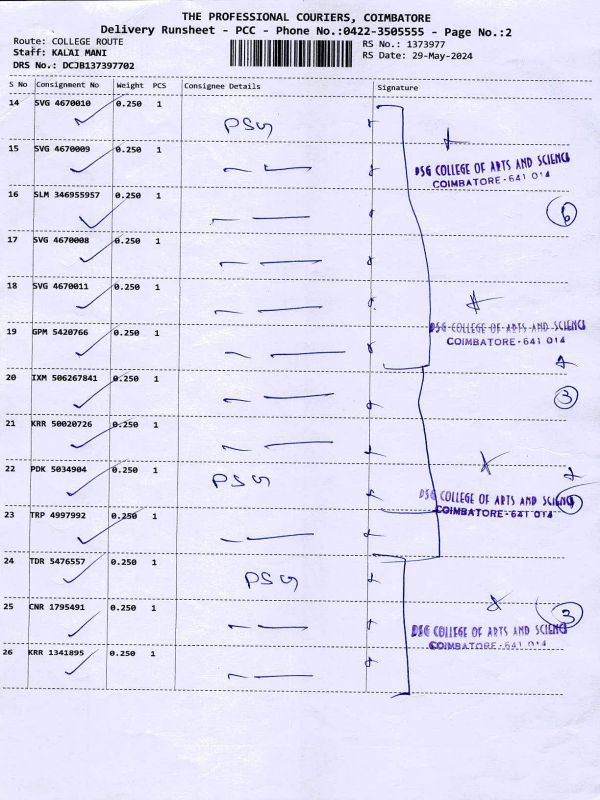 THE PROFESSIONAL COURIERS, COIMBATORE
Delivery Runsheet - PCC - Phone No.:0422-3505555 - Page No.:2
Route: COLLEGE ROUTE
Staff: KALAI MANI
DRS No.: DCJB137397702
RS No.: 1373977
RS Date: 29-May-2024
S No Consignment No Weight PCS Consignee Details Signature
14 SVG 4670010 0.250 1 PSG
15 SVG 4670009 0.250 1
PSG COLLEGE OF ARTS AND SCIENCE
COIMBATORE-641 014
16 SLM 346955957 0.250 1 6
17 SVG 4670008 0.250 1
18 SVG 4670011 0.250 1
19 GPM 5420766 0.250 1
PSG COLLEGE OF ARTS AND SCIENCE
COIMBATORE-641 014
20 IXM 506267841 0.250 1 3
21 KRR 50020726 0.250 1
22 PDK 5034904 0.250 1 PSG
PSG COLLEGE OF ARTS AND SCIENCE
COIMBATORE-641 014
23 TRP 4997992 0.250 1
24 TDR 5476557 0.250 1 PSG
25 CNR 1795491 0.250 1 3
PSG COLLEGE OF ARTS AND SCIENCE
COIMBATORE-641 014
26 KRR 1341895 0.250 1